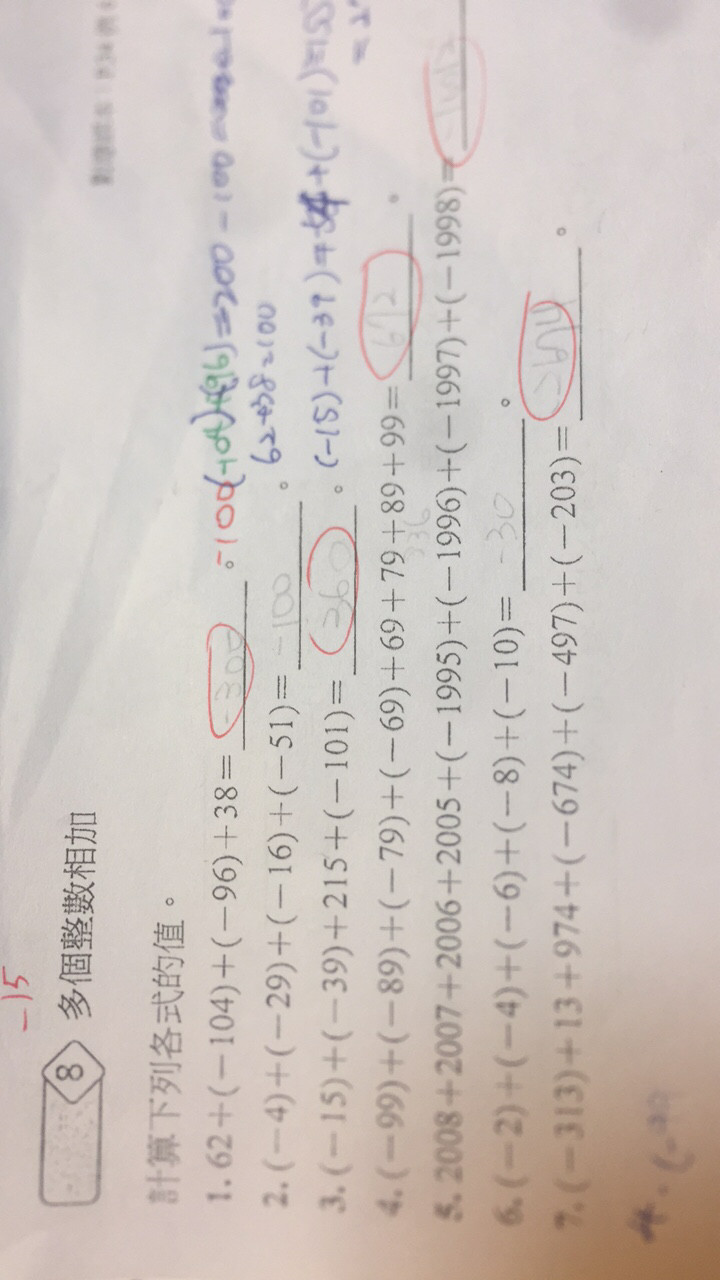 -15
8 多個整數相加
計算下列各式的值。
1. 62+(-104)+(-96)+38= -300 。 -100 (-104)+(-96)=200-100
62+38=100
2. (-4)+(-29)+(-16)+(-51)= -100 。
3. (-15)+(-39)+215+(-101)= 360 。 (-15)+(-39)+ +(-101)=155
4. (-99)+(-89)+(-79)+(-69)+69+79+89+99= 672 。
336
5. 2008+2007+2006+2005+(-1995)+(-1996)+(-1997)+(-1998)=
6. (-2)+(-4)+(-6)+(-8)+(-10)= -30 。
7. (-313)+13+974+(-674)+(-497)+(-203)= 。